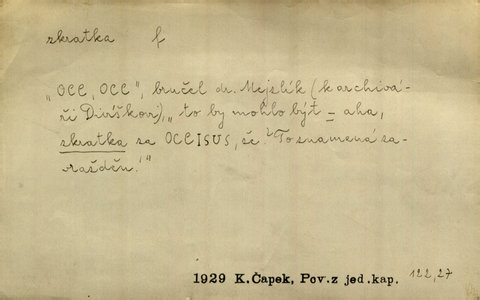 zkratka f
„OCC, OCC", bručel dr. Mejzlík (k archivá-
ři Divíškovi), „to by mohlo být – aha,
zkratka za OCCISUS, že? To znamená za-
vražděn."
1929 K.Čapek, Pov.z jed.kap. 122,27